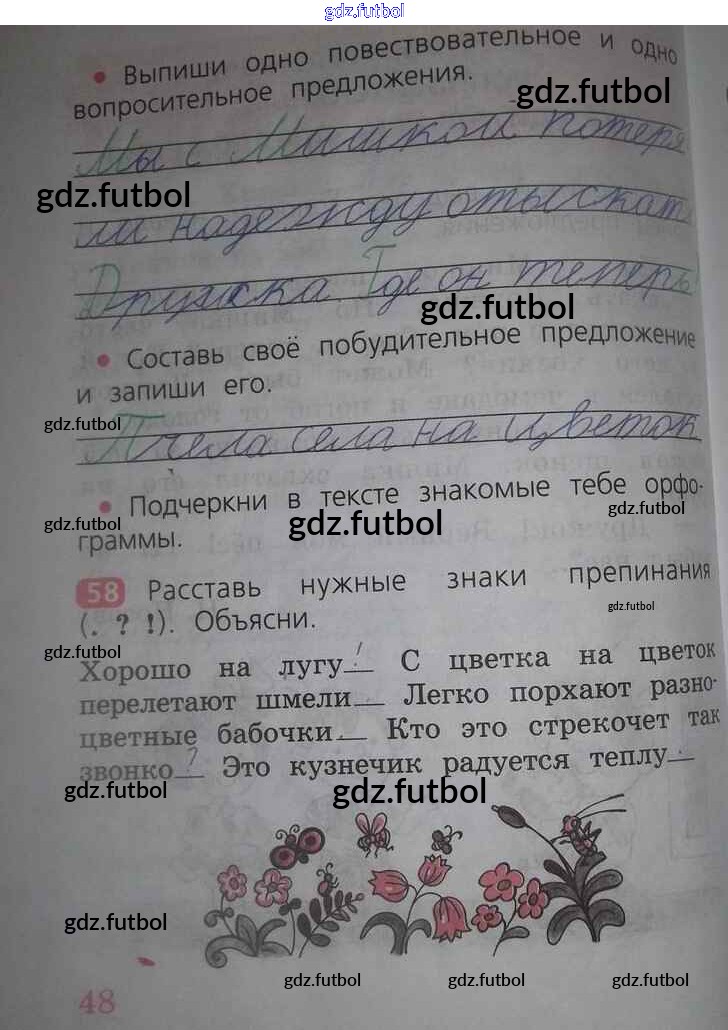 gdz.futbol
• Выпиши одно повествовательное и одно
вопросительное предложения.
gdz.futbol
Мы с Мишкой потеря
gdz.futbol
ли надежду отыскать
Дружка Где он теперь
gdz.futbol
• Составь своё побудительное предложение
и запиши его.
gdz.futbol
Пчела села на цветок
• Подчеркни в тексте знакомые тебе орфо-
gdz.futbol gdz.futbol gdz.futbol
граммы.
58 Расставь нужные знаки препинания
(. ? !). Объясни.
gdz.futbol
gdz.futbol
Хорошо на лугу ! С цветка на цветок
перелетают шмели . Легко порхают разно-
цветные бабочки . Кто это стрекочет так
звонко ? Это кузнечик радуется теплу .
gdz.futbol gdz.futbol
gdz.futbol
gdz.futbol gdz.futbol gdz.futbol
48